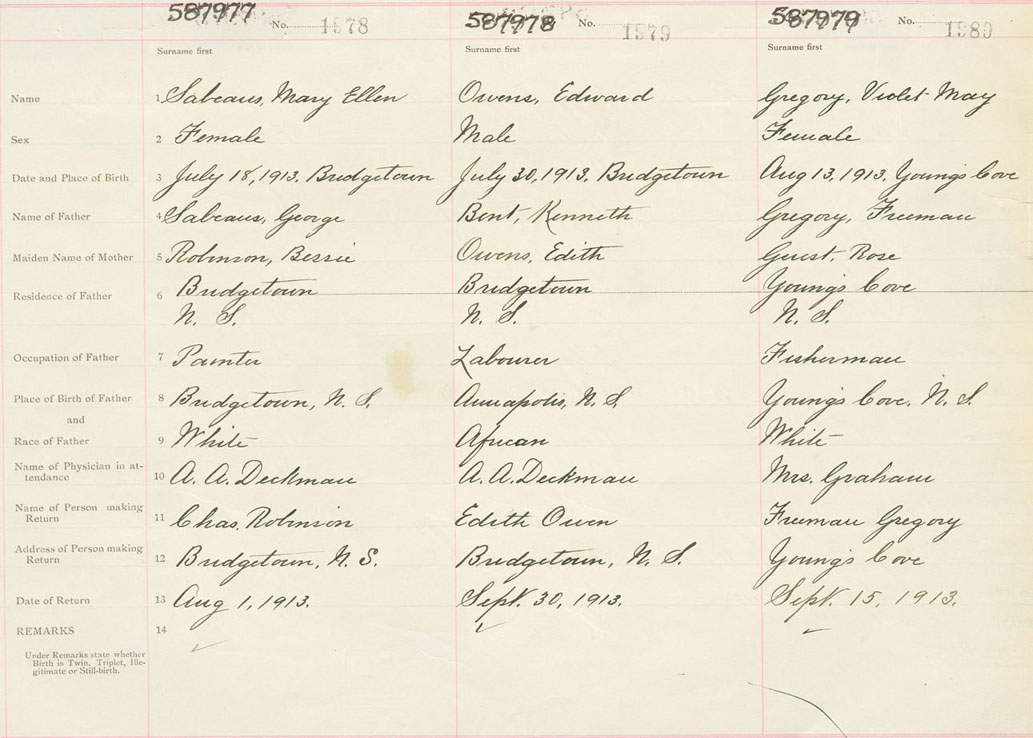 587977 No. 1978 587978 No. 1979 587979 No. 1980
Surname first Surname first Surname first
Name 1 Sabeaus, Mary Ellen Owens, Edward Gregory, Violet May
Sex 2 Female Male Female
Date and Place of Birth 3 July 18, 1913. Bridgetown July 30, 1913. Bridgetown Aug 13, 1913. Young's Cove
Name of Father 4 Sabeaus, George Bent, Kenneth Gregory, Freeman
Maiden Name of Mother 5 Robinson, Bessie Owens, Edith Guest, Rose
Residence of Father 6 Bridgetown Bridgetown Young's Cove
N. S. N. S. N. S.
Occupation of Father 7 Painter Labourer Fisherman
Place of Birth of Father 8 Bridgetown, N. S. Annapolis, N. S. Young's Cove, N. S.
and
Race of Father 9 White African White
Name of Physician in at-
tendence 10 A. A. Deckman A. A. Deckman Mrs. Graham
Name of Person making
Return 11 Chas. Robinson Edith Owen Freeman Gregory
Address of Person making
Return 12 Bridgetown, N. S. Bridgetown, N. S. Young's Cove
Date of Return 13 Aug 1, 1913. Sept. 30, 1913. Sept. 15, 1913.
REMARKS 14
Under Remarks state whether
Birth is Twin, Triplet, Ille-
gitimate or Still-birth.